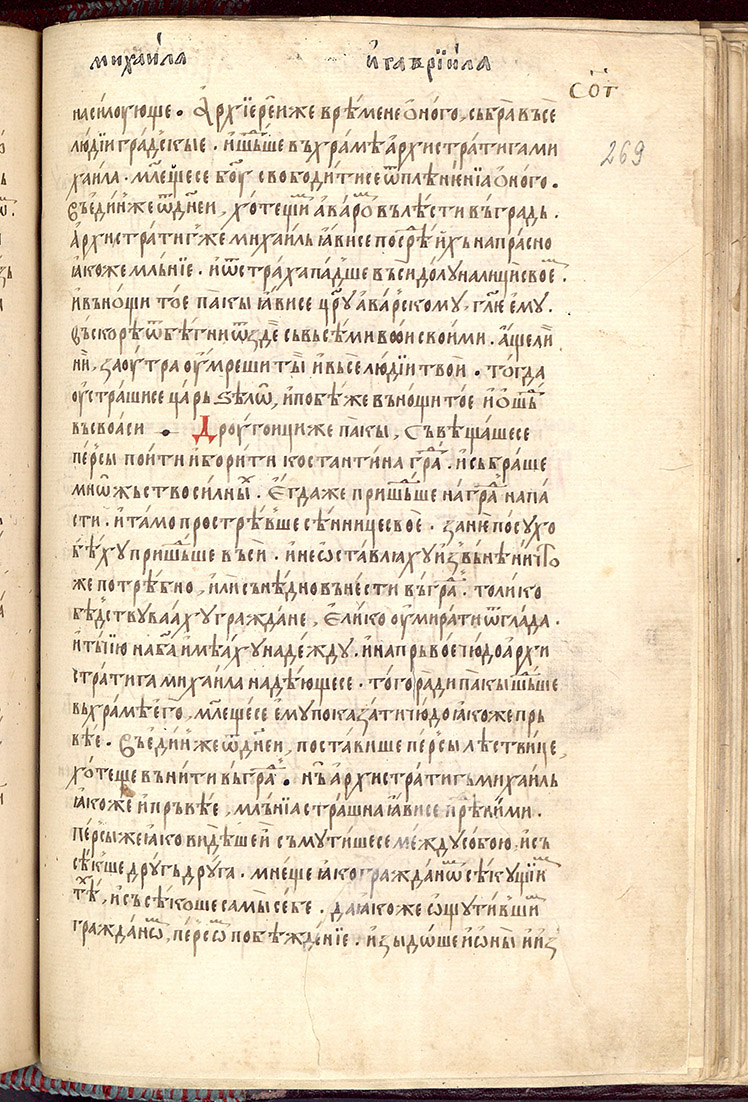 михаи́ла и҆гаврїи́ла
со҃г
269
насилоующе . А҆рхїере́и же вре́мене о́ного , събра въсе
лю́дїи гра́дскые . и҆ шⷣьше въ хра́мь а҆рхистрати́га ми
хаи́ла . млещесе бг҃оу свободи́тисе ѿ плѣне́нїа о́ного .
Въ еди́н же ѿ дн҃еи , хоте́щиⷨ а҆ва́роⷨ въ лѣ́сти въ гра́дь .
А҆рхистрати́г же михаи́ль ꙗ҆́висе посрⷣѣ и҆́хь напрасно
ꙗ҆́коже мль́нїе . и҆ ѿ стра́ха па́дше въси до́лу на лици́ⷯ свое .
и҆ въ но́щи то́е па́кы ꙗ҆́висе цр҃у а҆ва́рскому , гл҃е е҆му .
Въскорѣ ѿбѣ́гни ѿ зде съ въсѣ́ми во́и свои́ми . а҆́ще ли
ни , за оу҆́тра оу҆́мреши ты и҆ въсе лю́дїи твои . То́гда
оу҆стра́шисе ца́рь ѕѣлѡ̀ , и҆ побѣ́же въ но́щи то́е и҆ о҆шⷣь
въ своа си . Дроу́гоици же па́кы , съвѣща́шесе
пе́рсы поити и҆ бори́ти костанти́на граⷣ . и҆ събра́ше
мнѡ́жьство си́лныⷯ . Е҆гда́же пришⷣьше на граⷣ напа
сти . и҆ та́мо простре́вше сѣ́нницее свое . зане по су́хо
бѣ́ху пришⷣьше въси . и҆ не ѡ҆ставлꙗ́ху и҆звънѣ ничто
же потрѣ́бно , и҆ли снѣ́дно вънести въ граⷣ . то́лико
бѣ́дствуваху гра́ждане , е҆ли́ко оу҆мира́ти ѿ гла́да .
и҆ тъ́їю на ба҃ и҆мѣ́аху наде́жду . и҆ на прьво́е чю́до а҆рхи
страти́га михаи́ла надѣ́ющесе . того ради па́кы шⷣьше
въ хра́мь е҆го̀ , млещесе е҆му показа́ти чю́до ꙗ҆́коже прь
вѣе . Въ еди́н же ѿ дн҃еи , поста́више пе́рсы лѣ́ствице ,
хо́теще въни́ти въ граⷣ . нъ а҆рхистрати́гь михаи́ль
ꙗ҆́коже и҆ прьвѣе , мль́нїа стра́шна ꙗ҆́висе прⷣѣ ни́ми .
пе́рсы же ꙗ҆́ко ви́дѣше и , съмути́шесе ме́жду собою , и҆ съ
сѣ́кше дру́гь дру́га . мне́ще ꙗ҆́ко гражда́нѡⷨ сѣку́щїиⷨ
тѣⷯ , и҆ съсѣ́коше са́мы себе . да ꙗ҆́коже ѡ҆щути́вшиⷨ
гражда́нѡⷨ , пе́рсѡⷨ побѣжде́нїе . и҆зыдо́ше и҆ ѡ҆ны и҆ и҆з